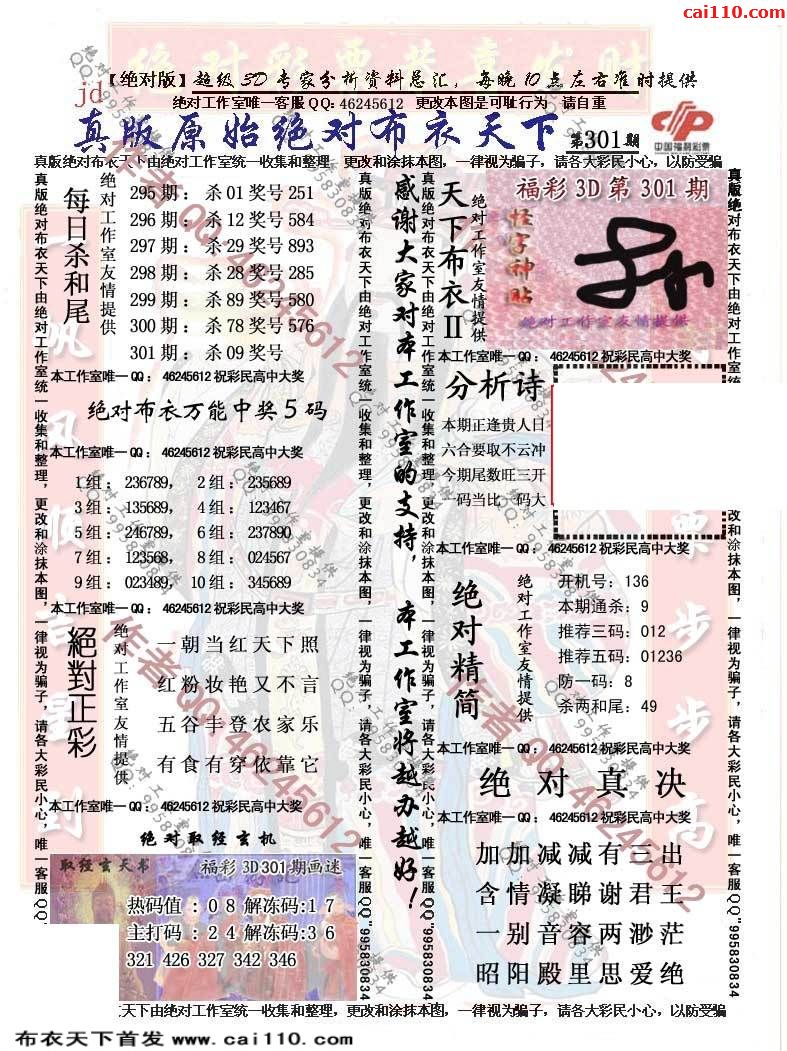 cai110.com
【绝对版】超级3D专家分析资料总汇，每晚10点左右准时提供
jd
绝对工作室唯一客服QQ：46245612 更改本图是可耻行为 请自重
真版原始绝对布衣天下 第301期
中国福利彩票
真版绝对布衣天下由绝对工作室统一收集和整理，更改和涂抹本图，一律视为骗子，请各大彩民小心，以防受骗
每日杀和尾
绝对工作室友情提供
295期：杀01奖号251
296期：杀12奖号584
297期：杀29奖号893
298期：杀28奖号285
299期：杀89奖号580
300期：杀78奖号576
301期：杀09奖号
本工作室唯一QQ：46245612祝彩民高中大奖
绝对布衣万能中奖5码
本工作室唯一QQ：46245612祝彩民高中大奖
1组：236789， 2组：235689
3组：135689， 4组：123467
5组：246789， 6组：237890
7组：123568， 8组：024567
9组：023489， 10组：345689
本工作室唯一QQ：46245612祝彩民高中大奖
絕對正彩
绝对工作室友情提供
一朝当红天下照
红粉妆艳又不言
五谷丰登农家乐
有食有穿依靠它
本工作室唯一QQ：46245612祝彩民高中大奖
绝对取经玄机
取经玄天书
福彩3D301期画迷
热码值：08解冻码：17
主打码：24解冻码：36
321 426 327 342 346
感谢大家对本工作室的支持，本工作室将越办越好！
天下布衣II
绝对工作室友情提供
福彩3D第301期
怪字神贴
绝对工作室友情提供
本工作室唯一QQ：46245612祝彩民高中大奖
分析诗
本期正逢贵人日
六合要取不云冲
今期尾数旺三开
一码当比一码大
本工作室唯一QQ：46245612祝彩民高中大奖
绝对精简
绝对工作室友情提供
开机号：136
本期通杀：9
推荐三码：012
推荐五码：01236
防一码：8
杀两和尾：49
本工作室唯一QQ：46245612祝彩民高中大奖
绝对真决
本工作室唯一QQ：46245612祝彩民高中大奖
加加减减有三出
含情凝睇谢君王
一别音容两渺茫
昭阳殿里思爱绝
真版绝对布衣天下由绝对工作室统一收集和整理，更改和涂抹本图，一律视为骗子，请各大彩民小心，唯一客服QQ"995830834
天下由绝对工作室统一收集和整理，更改和涂抹本图，一律视为骗子，请各大彩民小心，以防受骗
布衣天下首发 www.cai110.com